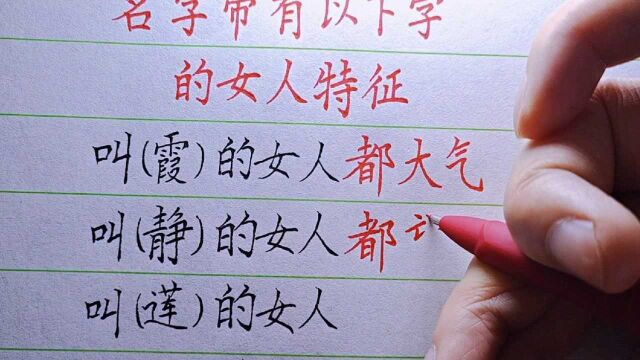 名字带有以下字
的女人特征
叫(霞)的女人都大气
叫(静)的女人都
叫(莲)的女人